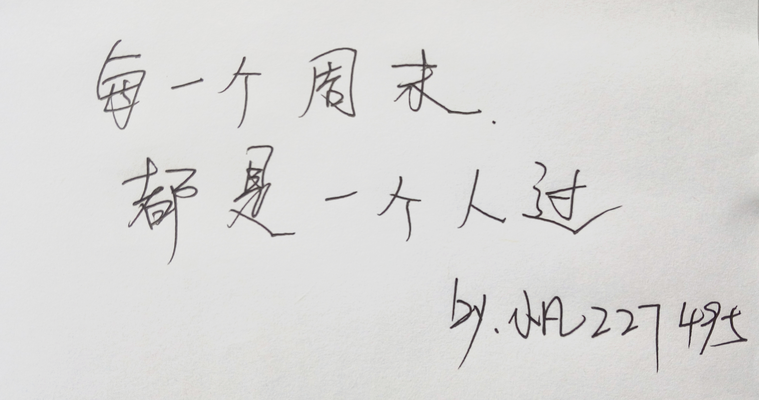 每一个周末.
都是一个人过
by.小凡227495